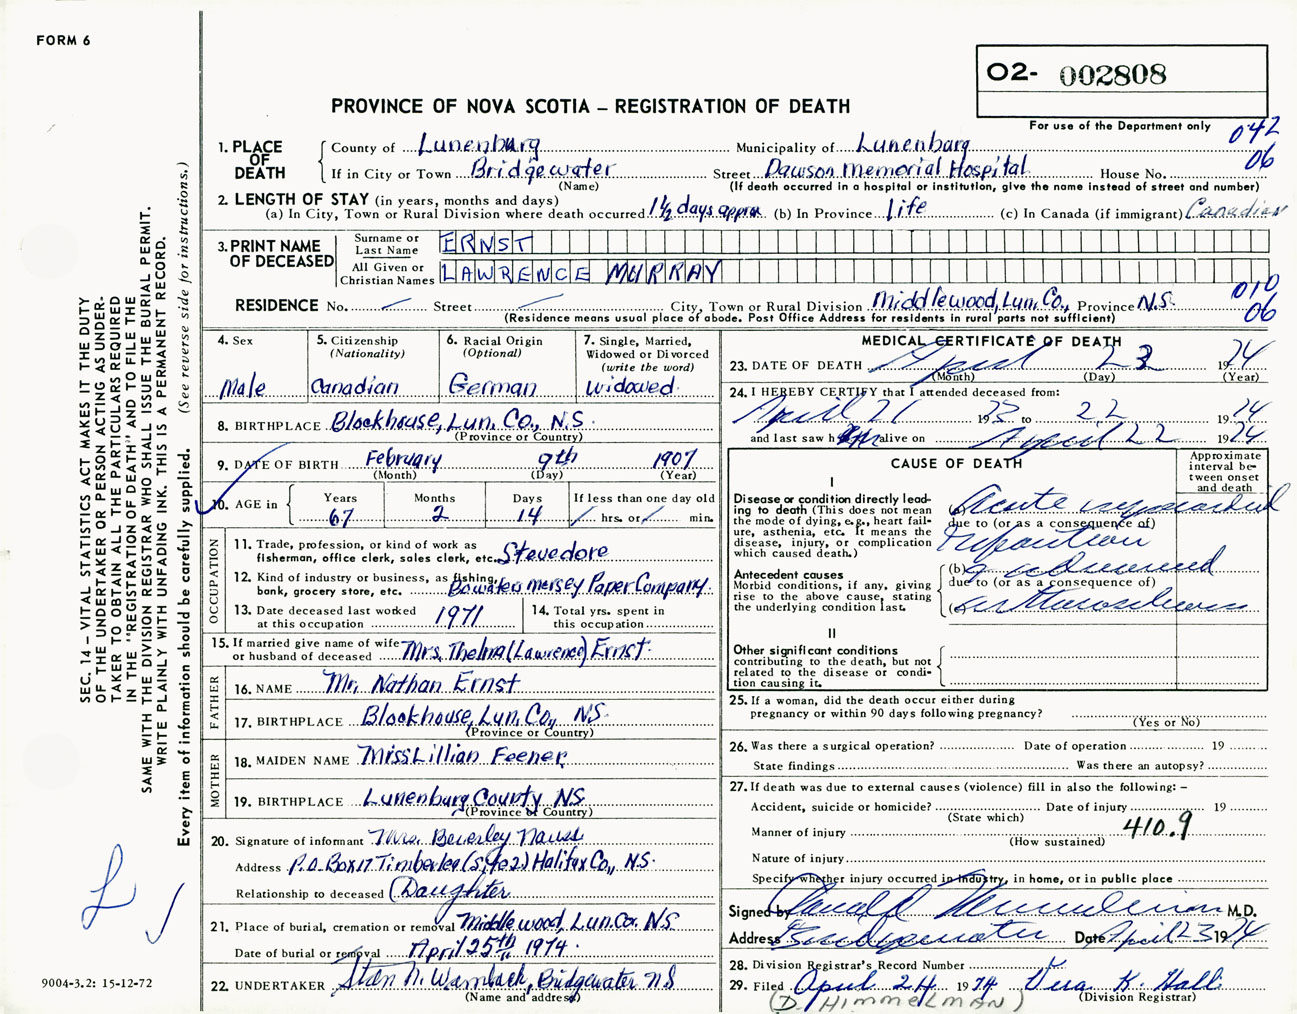 FORM 6
O2- 002808
PROVINCE OF NOVA SCOTIA – REGISTRATION OF DEATH
For use of the Department only
042
06
1. PLACE OF DEATH
County of Lunenburg Municipality of Lunenburg
If in City or Town Bridgewater Street Dawson Memorial Hospital House No.
(Name) (If death occurred in a hospital or institution, give the name instead of street and number)
2. LENGTH OF STAY (in years, months and days)
(a) In City, Town or Rural Division where death occurred 1½ days approx. (b) In Province Life (c) In Canada (if immigrant) Canadian
3. PRINT NAME OF DECEASED
Surname or Last Name ERNST
All Given or Christian Names LAWRENCE MURRAY
010
06
RESIDENCE No. — Street — City, Town or Rural Division Middlewood, Lun. Co., Province N.S.
(Residence means usual place of abode. Post Office Address for residents in rural parts not sufficient)
4. Sex
Male
5. Citizenship
(Nationality)
Canadian
6. Racial Origin
(Optional)
German
7. Single, Married,
Widowed or Divorced
(write the word)
Widowed
8. BIRTHPLACE Blockhouse, Lun. Co., N.S.
(Province or Country)
9. DATE OF BIRTH February 9th 1907
(Month) (Day) (Year)
10. AGE in
Years Months Days If less than one day old
67 2 14 / hrs. or / min.
OCCUPATION
11. Trade, profession, or kind of work as
fisherman, office clerk, sales clerk, etc. Stevedore
12. Kind of industry or business, as fishing,
bank, grocery store, etc. Bowaters Mersey Paper Company.
13. Date deceased last worked
at this occupation 1971
14. Total yrs. spent in
this occupation
15. If married give name of wife
or husband of deceased Mrs. Thelma (Lawrence) Ernst.
FATHER
16. NAME Mr. Nathan Ernst
17. BIRTHPLACE Blockhouse, Lun. Co., N.S.
(Province or Country)
MOTHER
18. MAIDEN NAME Miss Lillian Feener
19. BIRTHPLACE Lunenburg County NS
(Province or Country)
20. Signature of informant Mrs. Beverley Nauss
Address P.O. Box 17 Timberlea (Site 2) Halifax Co., N.S.
Relationship to deceased (Daughter
21. Place of burial, cremation or removal Middlewood, Lun. Co. N.S
Date of burial or removal April 25th 1974.
22. UNDERTAKER Stan N. Wamback, Bridgewater NS
(Name and address)
MEDICAL CERTIFICATE OF DEATH
23. DATE OF DEATH April 23 1974
(Month) (Day) (Year)
24. I HEREBY CERTIFY that I attended deceased from:
April 21 1973 to 22 1974
and last saw him alive on April 22 1974
CAUSE OF DEATH
Approximate
interval be-
tween onset
and death
I
Disease or condition directly lead-
ing to death (This does not mean
the mode of dying, e.g., heart fail-
ure, asthenia, etc. It means the
disease, injury, or complication
which caused death.)
Acute myocardial
due to (or as a consequence of)
infarction
Antecedent causes
Morbid conditions, if any, giving
rise to the above cause, stating
the underlying condition last.
(b) advanced
due to (or as a consequence of)
arteriosclerosis
II
Other significant conditions
contributing to the death, but not
related to the disease or condi-
tion causing it.
25. If a woman, did the death occur either during
pregnancy or within 90 days following pregnancy?
(Yes or No)
26. Was there a surgical operation? Date of operation 19
State findings Was there an autopsy?
27. If death was due to external causes (violence) fill in also the following: –
Accident, suicide or homicide? Date of injury 19
(State which)
Manner of injury 410.9
(How sustained)
Nature of injury
Specify whether injury occurred in industry, in home, or in public place
Signed by Donald M.D.
Address Bridgewater Date April 23 1974
28. Division Registrar's Record Number
29. Filed April 24 1974 Vera K. Hall
(Division Registrar)
(D. HIMMELMAN)
SEC. 14 – VITAL STATISTICS ACT MAKES IT THE DUTY
OF THE UNDERTAKER OR PERSON ACTING AS UNDER-
TAKER TO OBTAIN ALL THE PARTICULARS REQUIRED
IN THE "REGISTRATION OF DEATH" AND TO FILE THE
SAME WITH THE DIVISION REGISTRAR WHO SHALL ISSUE THE BURIAL PERMIT.
WRITE PLAINLY WITH UNFADING INK. THIS IS A PERMANENT RECORD.
Every item of information should be carefully supplied. (See reverse side for instructions.)
L
9004-3.2: 15-12-72